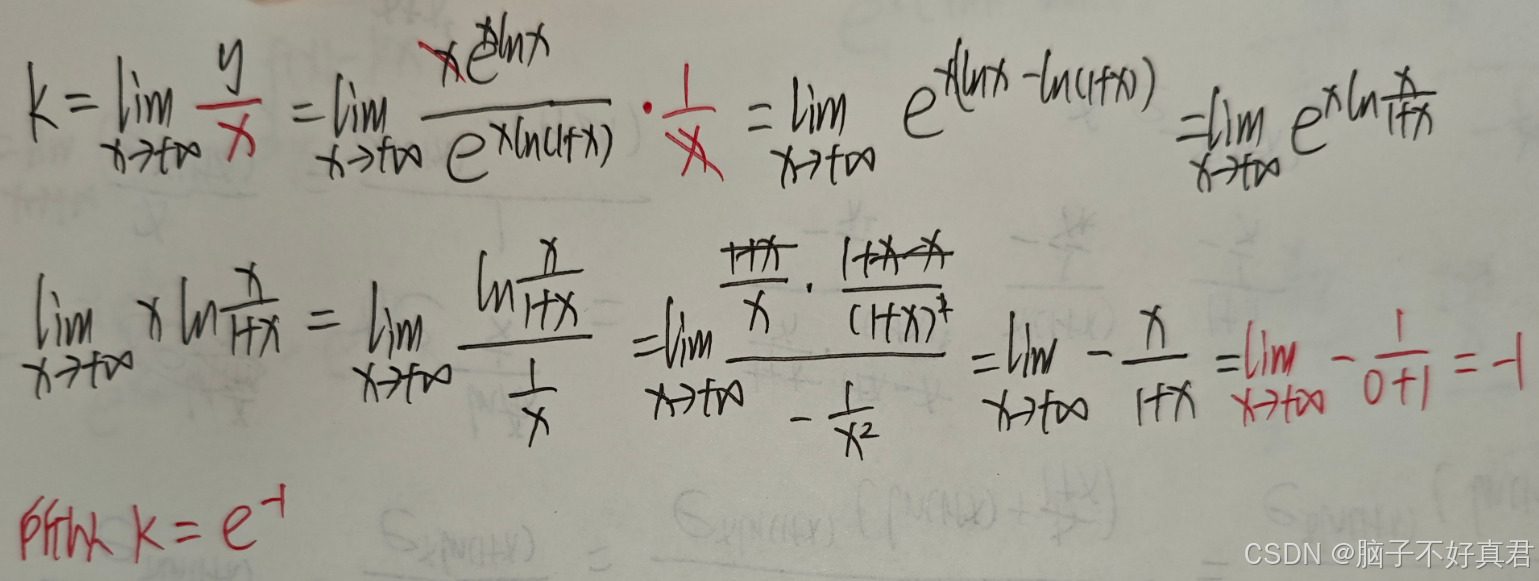 k = lim_{x→+∞} y/x = lim_{x→+∞} xe^{xlnx}/e^{xln(1+x)} · 1/x = lim_{x→+∞} e^{x(lnx - ln(1+x))} = lim_{x→+∞} e^{xln x/(1+x)}
lim_{x→+∞} x ln x/(1+x) = lim_{x→+∞} (ln x/(1+x))/(1/x) = lim_{x→+∞} ((1+x)/x · (1+x-x)/(1+x)²)/(-1/x²) = lim_{x→+∞} - x/(1+x) = lim_{x→+∞} - 1/(0+1) = -1
所以 k = e^{-1}
CSDN @脑子不好真君